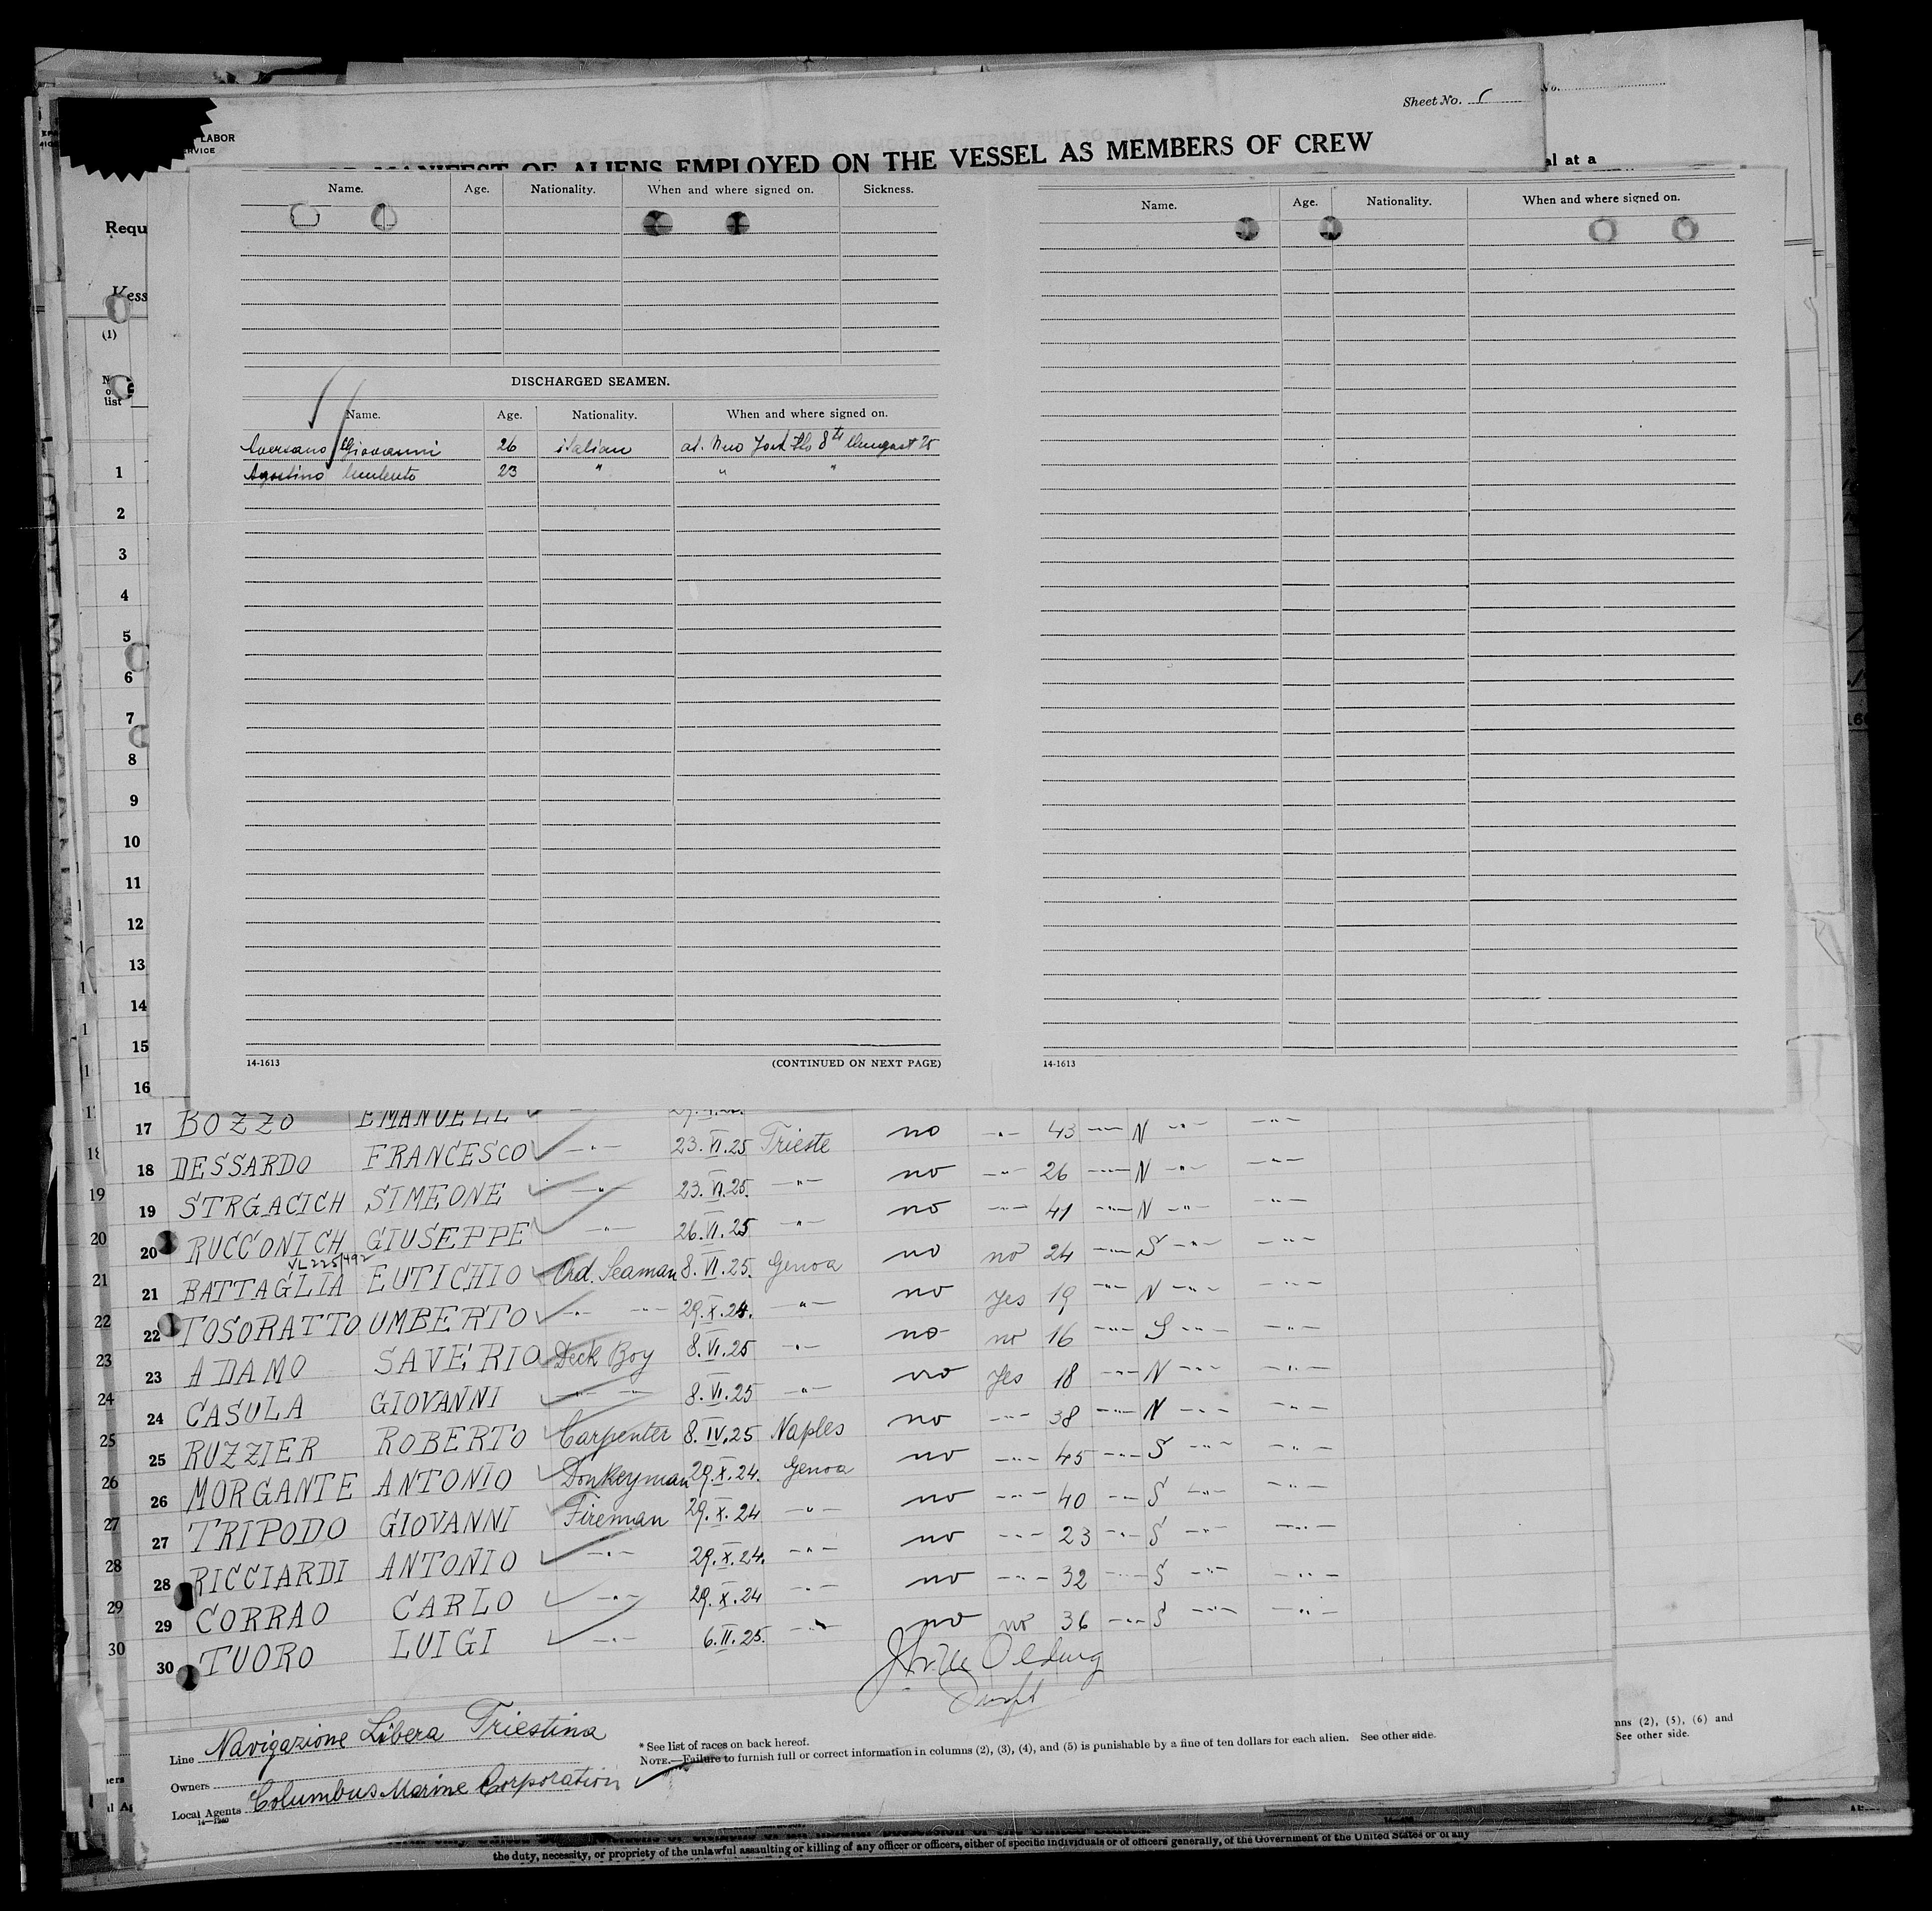 Sheet No.
No.
LABOR
MANIFEST OF ALIENS EMPLOYED ON THE VESSEL AS MEMBERS OF CREW
al at a
Requ
Vess
(1)
list
Name. Age. Nationality. When and where signed on. Sickness.
Name. Age. Nationality. When and where signed on.
DISCHARGED SEAMEN.
Name. Age. Nationality. When and where signed on.
Giovanni 26 italian at New York 8th August 25
Agostino 23 " " "
1
2
3
4
5
6
7
8
9
10
11
12
13
14
15
16
14-1613 (CONTINUED ON NEXT PAGE) 14-1613
17 BOZZO EMANUELL
18 DESSARDO FRANCESCO —"— 23.VI.25 Trieste no —"— 43 —"— N —"— —"—
19 STRGACICH SIMEONE —"— 23.VI.25. —"— no —"— 26 —"— N —"— —"—
20 RUCCONICH GIUSEPPE —"— 26.VI.25 —"— no —"— 41 —"— N —"— —"—
VL225/492
21 BATTAGLIA EUTICHIO Ord. Seaman 8.VI.25. Genoa no no 24 —"— S —"— —"—
22 TOSORATTO UMBERTO —"— —"— 29.X.24. —"— no Yes 19 —"— N —"— —"—
23 ADAMO SAVERIO Deck Boy 8.VI.25 —"— no no 16 —"— S —"— —"—
24 CASULA GIOVANNI —"— —"— 8.VI.25 —"— no Yes 18 —"— N —"— —"—
25 RUZZIER ROBERTO Carpenter 8.IV.25 Naples no —"— 38 —"— N —"— —"—
26 MORGANTE ANTONIO Donkeyman 29.X.24. Genoa no —"— 45 —"— S —"— —"—
27 TRIPODO GIOVANNI Fireman 29.X.24 —"— no —"— 40 —"— S —"— —"—
28 RICCIARDI ANTONIO —"— 29.X.24. —"— no —"— 23 —"— S —"— —"—
29 CORRAO CARLO —"— 29.X.24 —"— no —"— 32 —"— S —"— —"—
30 TUORO LUIGI —"— 6.II.25. —"— no no 36 —"— S —"— —"—
Line Navigazione Libera Triestina
* See list of races on back hereof.
NOTE.—Failure to furnish full or correct information in columns (2), (3), (4), and (5) is punishable by a fine of ten dollars for each alien. See other side.
Owners
Local Agents Columbus Marine Corporation
14—1240
nns (2), (5), (6) and
See other side.
the duty, necessity, or propriety of the unlawful assaulting or killing of any officer or officers, either of specific individuals or of officers generally, of the Government of the United States or of any